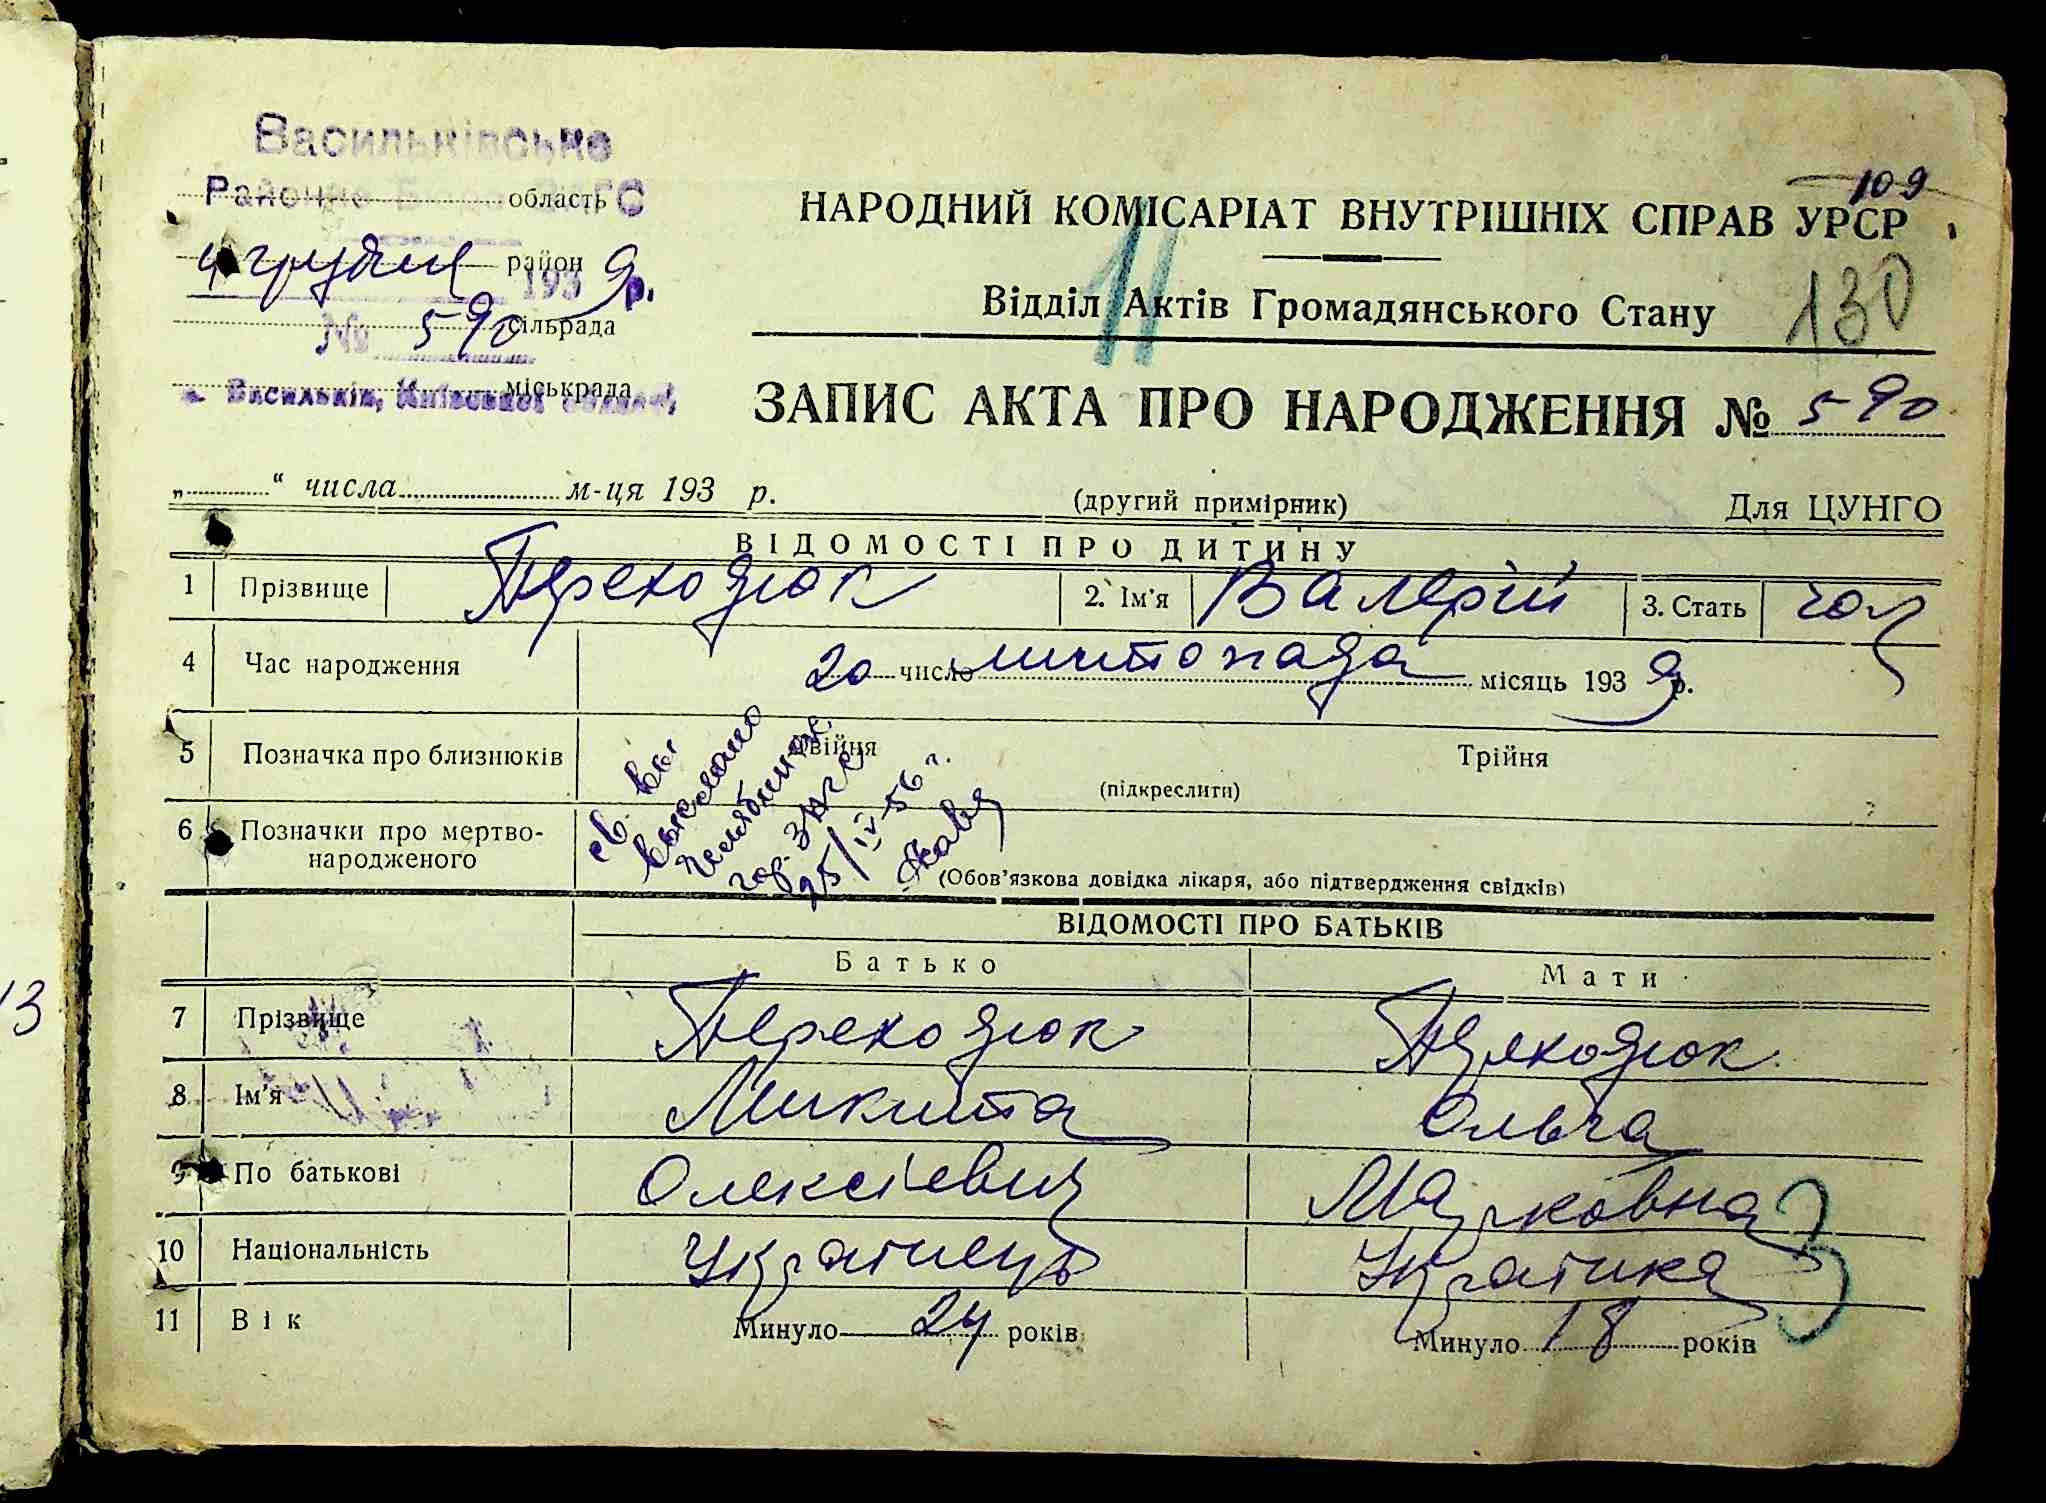 Васильківське
Районне Бюро ЗАГС
область
4 грудня район 1939 р.
№ 590 сільрада
міськрада
м. Васильків, Київської області
109
НАРОДНИЙ КОМІСАРІАТ ВНУТРІШНІХ СПРАВ УРСР
11
Відділ Актів Громадянського Стану
130
ЗАПИС АКТА ПРО НАРОДЖЕННЯ № 590
„ “ числа м-ця 193 р. (другий примірник) Для ЦУНГО
ВІДОМОСТІ ПРО ДИТИНУ
1 Прізвище Переходюк 2. Ім'я Валерій 3. Стать чол
4 Час народження 20 число листопада місяць 1939 р.
5 Позначка про близнюків Двійня Трійня
(підкреслити)
6 Позначки про мертво-
народженого
(Обов'язкова довідка лікаря, або підтвердження свідків)
св.
выслано
Челябинск
гор. ЗАГС
25/IV-56 г.
ВІДОМОСТІ ПРО БАТЬКІВ
Батько Мати
7 Прізвище Переходюк Переходюк
8 Ім'я Микита Ольга
9 По батькові Олексієвич Марковна
10 Національність Українець Українка
3
11 Вік Минуло 24 років Минуло 18 років
13